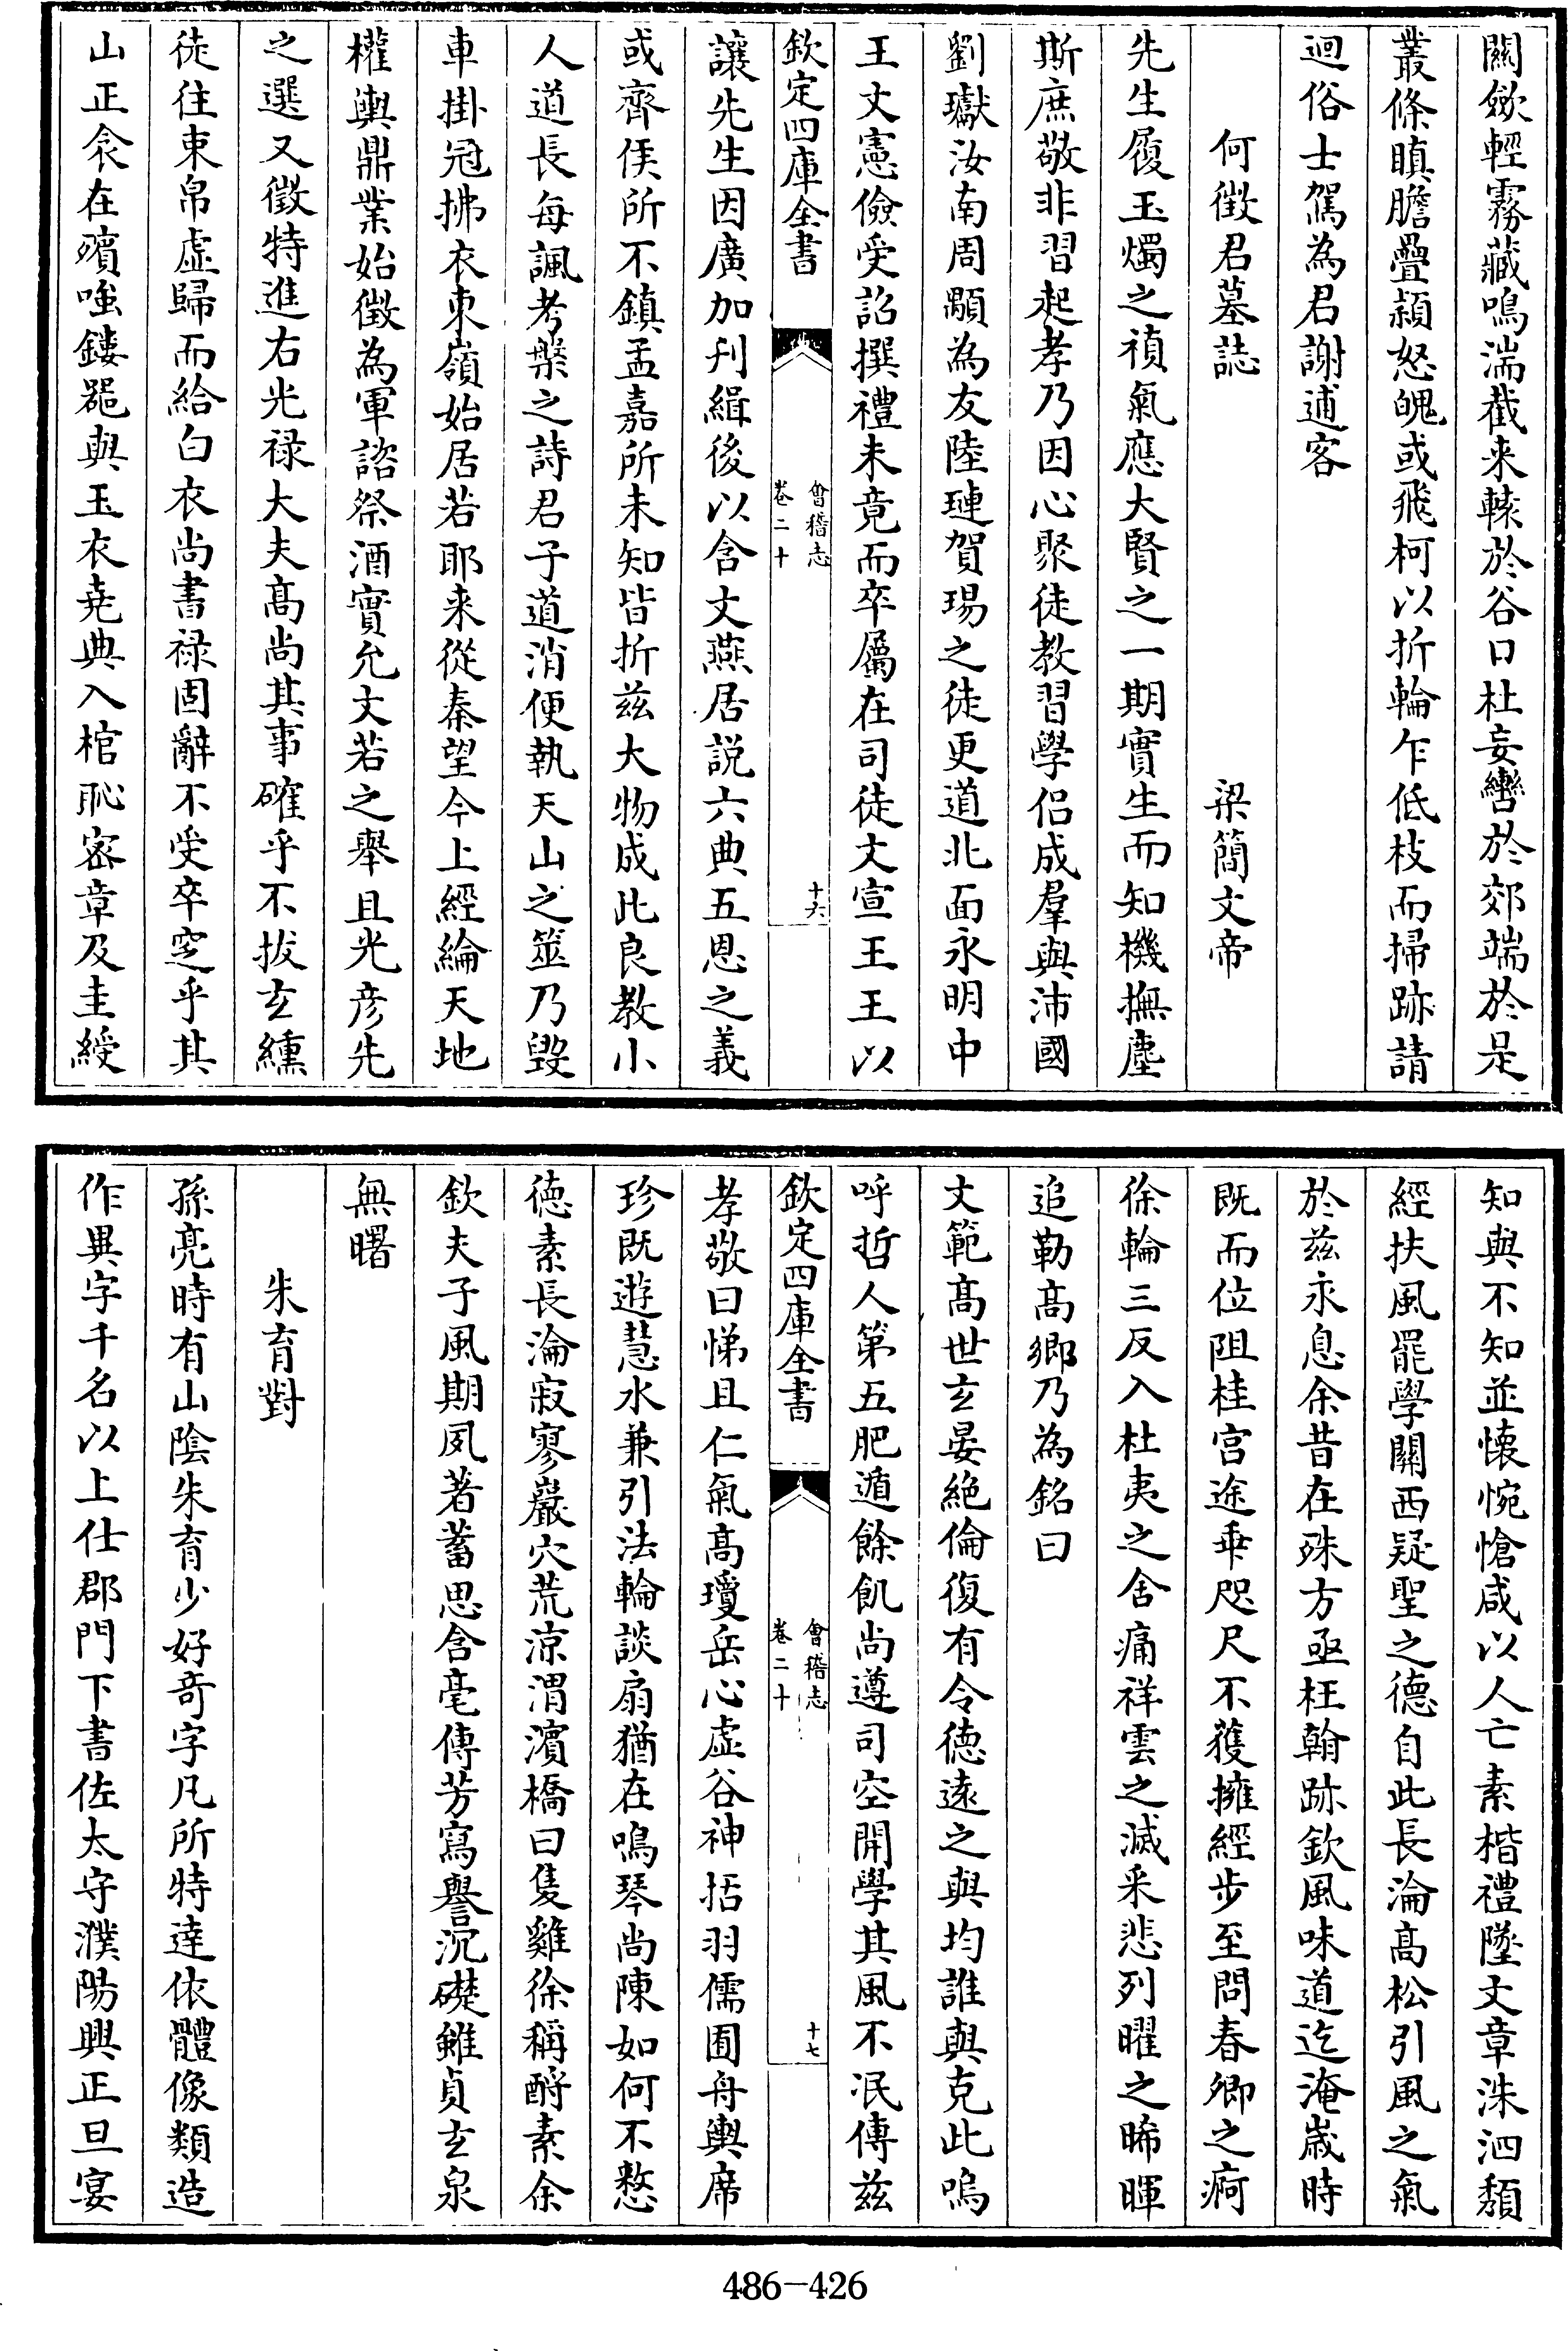 關歛輕霧藏鳴湍截来轅於谷口杜妄轡於郊端於是
叢條瞋膽疊穎怒魄或飛柯以折輪乍低枝而掃跡請
迴俗士駕為君謝逋客
何徴君墓誌　梁簡文帝
先生履玉燭之禎氣應大賢之一期實生而知機撫塵
斯庶敬非習起孝乃因心聚徒教習學侣成羣與沛國
劉瓛汝南周顒為友陸璉賀瑒之徒更道北面永明中
王文憲儉受詔撰禮未竟而卒屬在司徒文宣王王以
欽定四庫全書
會稽志
卷二十
十六
讓先生因廣加刋緝後以含文燕居説六典五恩之義
或齊侯所不鎮孟嘉所未知皆折兹大物成此良教小
人道長每諷考槃之詩君子道消便執天山之筮乃毁
車掛冠拂衣東嶺始居若耶来從秦望今上經綸天地
權輿鼎業始徴為軍諮祭酒實允文若之舉且光彦先
之選又徴特進右光禄大夫髙尚其事確乎不拔玄纁
徒往束帛虚歸而給白衣尚書禄固辭不受卒窆乎其
山正衾在殯嗤鏤罷與玉衣堯典入棺恥密章及圭綬
知與不知並懐惋愴咸以人亡素楷禮墜文章洙泗頽
經扶風罷學關西疑聖之德自此長淪髙松引風之氣
於兹永息余昔在殊方亟枉翰跡欽風味道迄淹歳時
既而位阻桂宫途乖咫尺不獲擁經步至問春卿之痾
徐輪三反入杜夷之舍痛祥雲之滅采悲列曜之晞暉
追勒髙鄉乃為銘曰
文範髙世玄晏絶倫復有令徳逺之與均誰與克此嗚
呼哲人第五肥遁餘飢尚遵司空開學其風不泯傳兹
欽定四庫全書
會稽志
卷二十
十七
孝敬曰悌且仁氣髙瓊岳心虚谷神括羽儒囿舟輿席
珍既遊慧水兼引法輪談扇猶在鳴琴尚陳如何不憗
徳素長淪寂寥巖穴荒凉渭濱橋曰隻雞徐稱酹素余
欽夫子風期夙著蓄思含毫傳芳寫譽沉礎雖貞玄泉
無曙
朱育對
孫亮時有山隂朱育少好竒字凡所特達依體像類造
作異字千名以上仕郡門下書佐太守濮陽興正旦宴
486-426